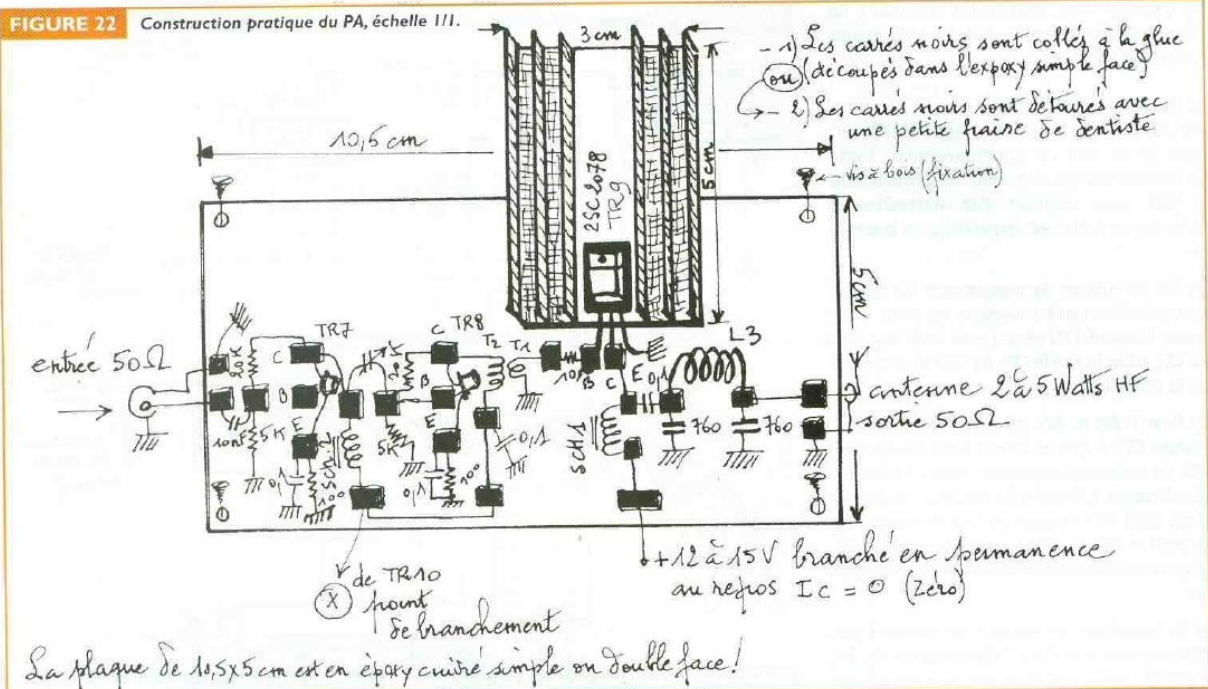 FIGURE 22 Construction pratique du PA, échelle 1/1.
3 cm
- 1) Les carrés noirs sont collés à la glue
ou (découpés dans l'expoxy simple face)
- 2) Les carrés noirs sont détourés avec
une petite fraise de dentiste
10,5 cm
5 cm
vis à bois (fixation)
2SC2078
TR9
5 cm
L3
TR7
C
B
E
C TR8
B
E
T2
T1
10Ω
B
C
E
0,1
entrée 50Ω
10nF
5K
5K
0,1
100
Sch1
0,1
100
0,1
SCH1
760
760
antenne 2 à 5 Watts HF
sortie 50Ω
+12 à 15V branché en permanence
au repos Ic = 0 (Zéro)
de TR10
X point
de branchement
La plaque de 10,5x5 cm est en époxy cuivré simple ou double face!